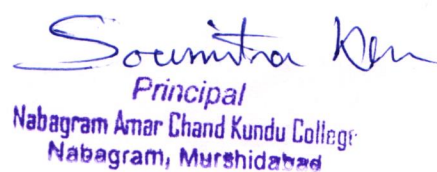 Soumitra Kar
Principal
Nabagram Amar Chand Kundu College
Nabagram, Murshidabad